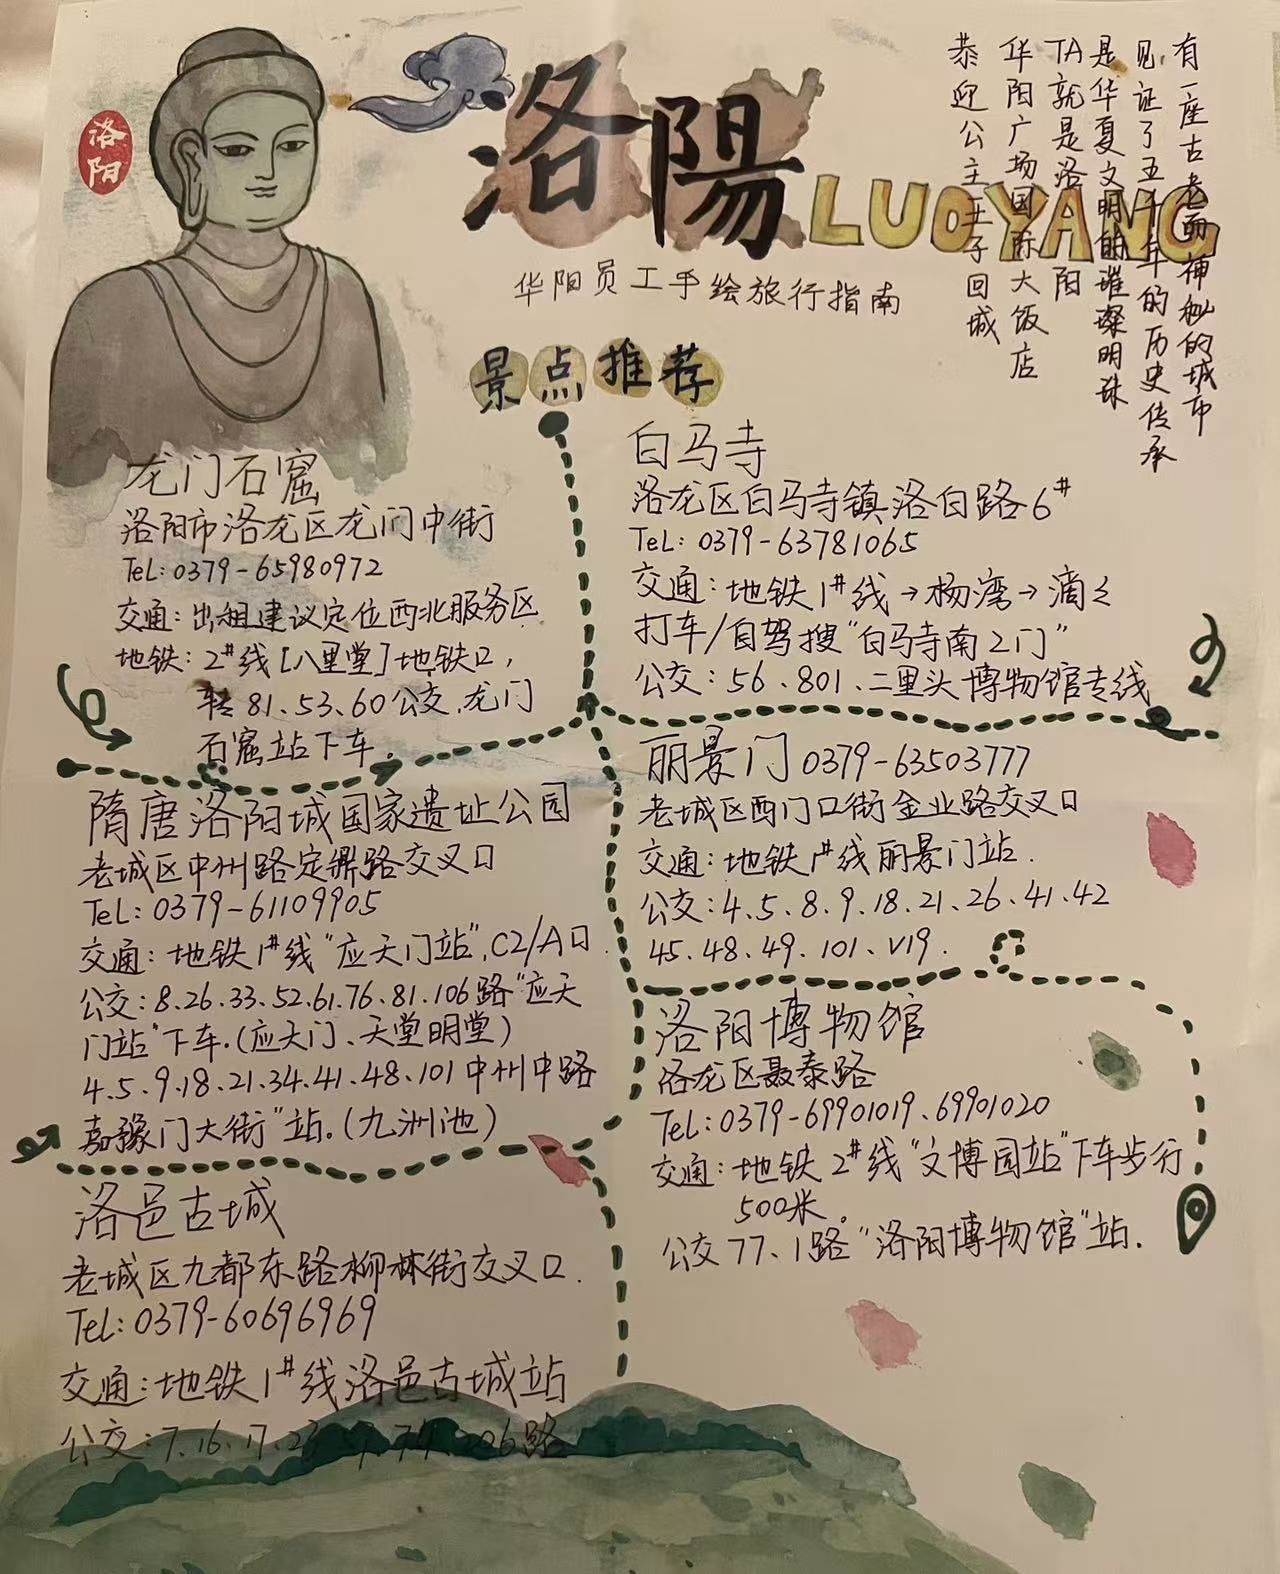 洛阳
洛陽
LUOYANG
华阳员工手绘旅行指南
有一座古老而神秘的城市
见证了五千年的历史传承
是华夏文明的璀璨明珠
TA就是洛阳
华阳广场国际大饭店
恭迎公主王子回城
景点推荐
龙门石窟
洛阳市洛龙区龙门中街
Tel:0379-65980972
交通:出租建议定位西北服务区
地铁:2#线[八里堂]地铁口,
转81、53、60公交、龙门
石窟站下车。
白马寺
洛龙区白马寺镇洛白路6#
Tel:0379-63781065
交通:地铁1#线→杨湾→滴滴
打车/自驾搜"白马寺南2门"
公交:56、801、二里头博物馆专线
丽景门 0379-63503777
老城区西门口街金业路交叉口
交通:地铁1#线丽景门站.
公交:4.5.8.9.18.21.26.41.42
45.48.49.101.V19.
隋唐洛阳城国家遗址公园
老城区中州路定鼎路交叉口
Tel:0379-61109905
交通:地铁1#线"应天门站",C2/A口
公交:8.26.33.52.61.76.81.106路"应天
门站"下车.(应天门、天堂明堂)
4.5.9.18.21.34.41.48.101中州中路
嘉豫门大街"站.(九洲池)
洛阳博物馆
洛龙区聂泰路
Tel:0379-69901019、69901020
交通:地铁2#线"文博园站"下车步行
500米。
公交77、1路"洛阳博物馆"站.
洛邑古城
老城区九都东路柳林街交叉口.
Tel:0379-60696969
交通:地铁1#线洛邑古城站
公交:7.16.17.23 206路